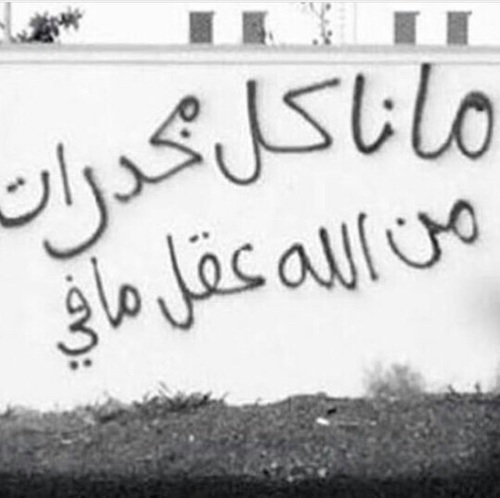 مانا كل مخدرات
من الله عقل مافي